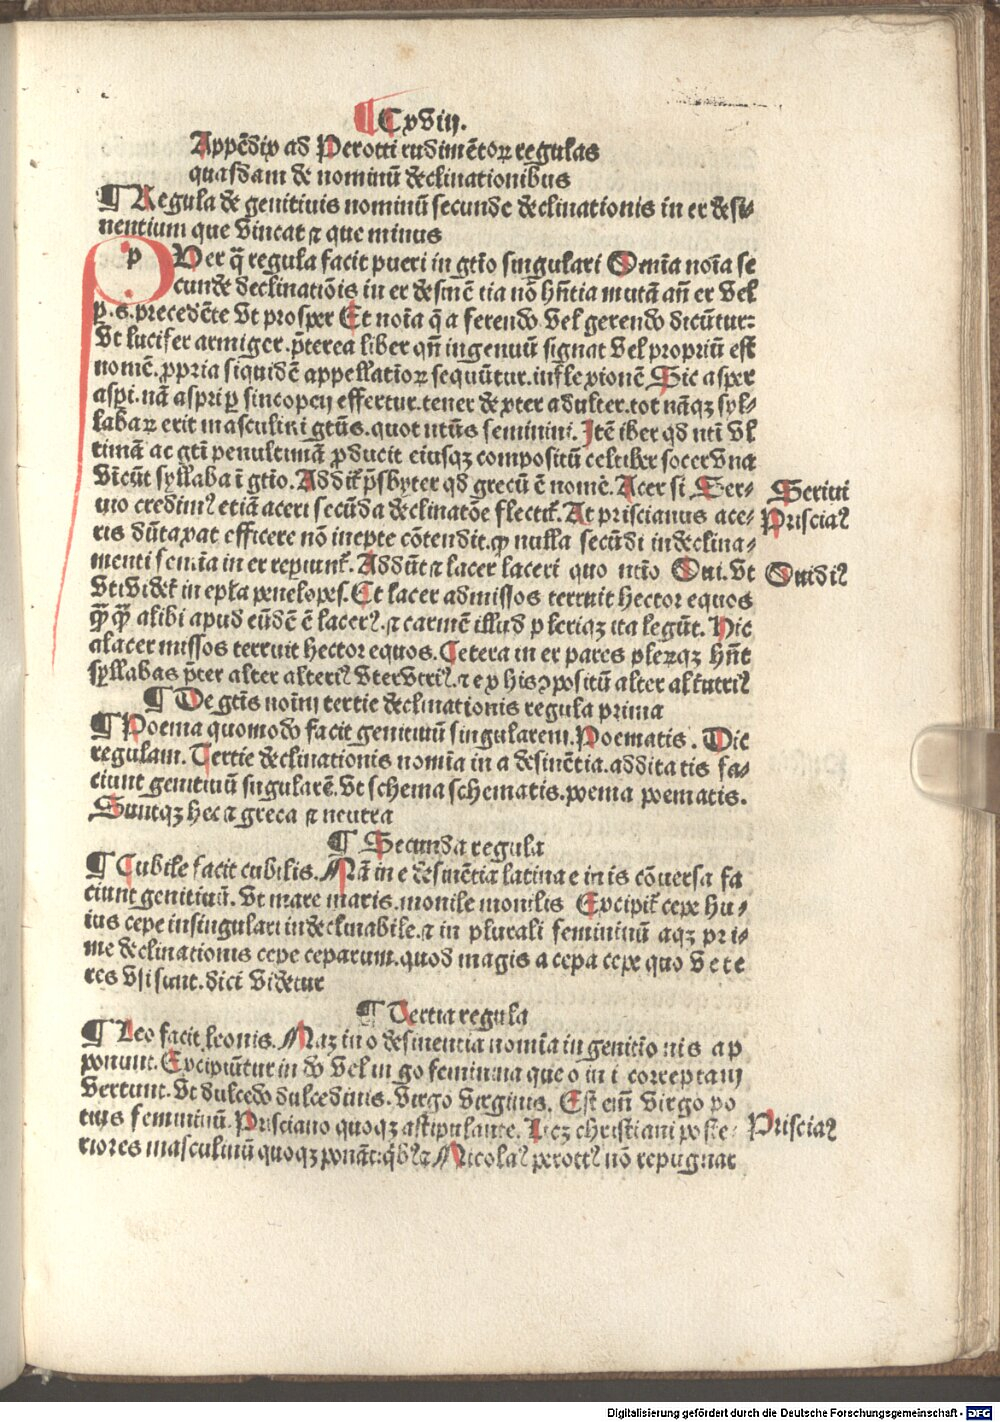 ¶ Cxviij.
Appēdix ad Perotti rudimētoꝝ regulas
quasdam de nominū declinationibus
¶ Regula de genitiuis nominū secunde declinationis in er desi-
nentium que vincat ⁊ que minus
PUer q̄ regula facit pueri in gtīo singulari Omīa noīa se
cunde declinatiōis in er desinē tia nō hn̄tia mutā an̄ er vel
p.s. precedēte vt prosper Et noīa q̄ a ferendo vel gerendo dicūtur:
vt lucifer armiger. p̄terea liber qn̄ ingenuū signat vel propriū est
nomē. ꝓpria siquidē appellatīoꝝ sequūtur. inflexionē. Sic asper
asperi. nā aspri ꝑ sincopen effertur. tener dexter adulter. tot nāqꝫ syl-
labaꝝ erit masculini gtūs. quot ntūs feminini. Itē iber qd ntī vl
timā ac gtī penultimā ꝓducit eiusqꝫ compositū celtiber socer vna
vīcūt syllaba ī gtīo. Addit̄ p̄sbyter qd grecū ē nomē. Acer si Ser-
uio credimꝰ etiā aceri secūda declinatōe flectit̄. At priscianus ace-
ris dūtaxat efficere nō inepte cōtendit. ꝙ nulla secūdi indeclina-
menti femīa in er reꝑiunt̄. Addūt ⁊ lacer laceri quo ntīo Oui. vt
vti videt̄ in epl̄a penelopes. Et lacer admissos terruit hector equos
q̄ꝙ̄ alibi apud eūdē ē lacerꝰ. ⁊ carmē illud pleriqꝫ ita legūt. Hic
alacer missos terruit hector equos. Cetera in er pares plerqꝫ hn̄t
syllabas p̄ter alter alteriꝰ vter vtriꝰ. ⁊ ex his ↄpositū alter alt̄utriꝰ
¶ De gtīs noīm tertie declinationis regula prima
¶ Poema quomodo facit genitiuū singularem. Poematis. Dic
regulam. Tertie declinationis nomīa in a desinētia. addita tis fa-
ciunt genitiuū singularē. vt schema schematis. poema poematis.
Suntqꝫ hec ⁊ greca ⁊ neutra
¶ Secunda regula
¶ Cubile facit cubilis. Nā in e desinētia latina e in is cōuersa fa
ciunt genitiuū. vt mare maris. monile monilis Excipit̄ cepe hu-
ius cepe insingulari indeclinabile. ⁊ in plurali femininū aqꝫ pri-
me declinationis cepe ceparum. quod magis a cepa cepe quo vete
res vsi sunt. dici videtur
¶ Tertia regula
¶ Leo facit leonis. Naꝫ in o desinentia nomīa in genitio nis ap
ponunt. Excipiūtur in do vel in go feminina que o in i correptam
vertunt. vt dulcedo dulcedinis. virgo virginis. Est em̄ virgo po
tius femininū. Prisciano quoqꝫ astipulante. Licꝫ christiani poste-
riores masculinū quoqꝫ ponāt: qͥbꝰ ⁊ Nicolaꝰ perottꝰ nō repugnat
Seruiꝰ
Prisciaꝰ
Ouidiꝰ
Prisciaꝰ
Digitalisierung gefördert durch die Deutsche Forschungsgemeinschaft - DFG